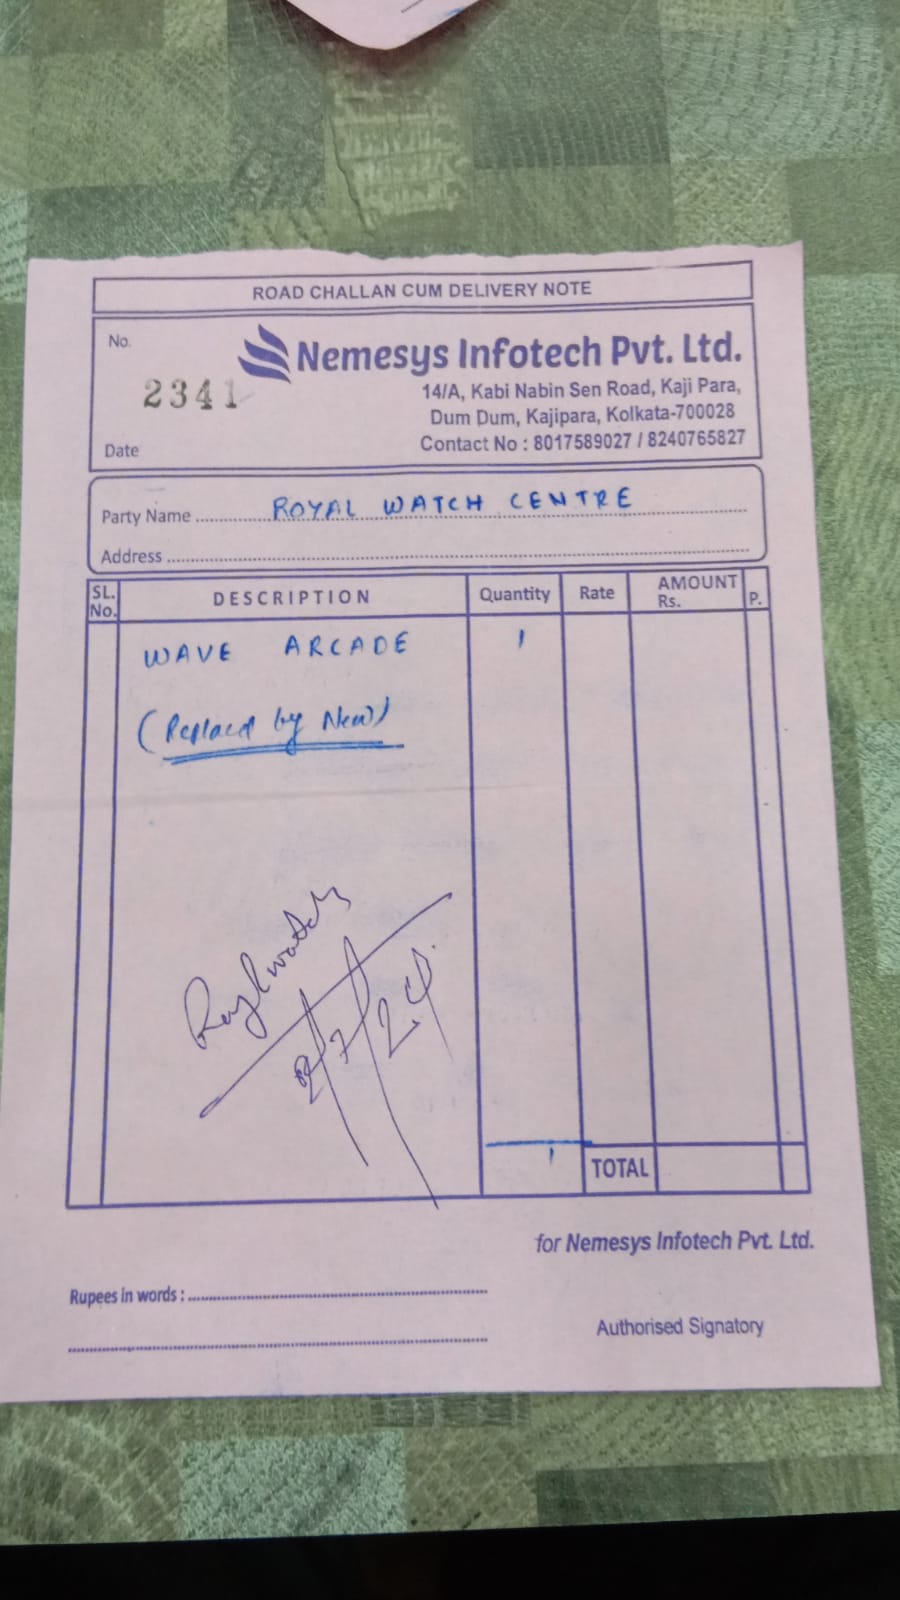 ROAD CHALLAN CUM DELIVERY NOTE
No.
2341
Date
Nemesys Infotech Pvt. Ltd.
14/A, Kabi Nabin Sen Road, Kaji Para,
Dum Dum, Kajipara, Kolkata-700028
Contact No : 8017589027 / 8240765827
Party Name ROYAL WATCH CENTRE
Address
SL. No. DESCRIPTION Quantity Rate AMOUNT Rs. P.
WAVE ARCADE 1
(Replaced by New)
2/7/24
1 TOTAL
for Nemesys Infotech Pvt. Ltd.
Rupees in words :
Authorised Signatory